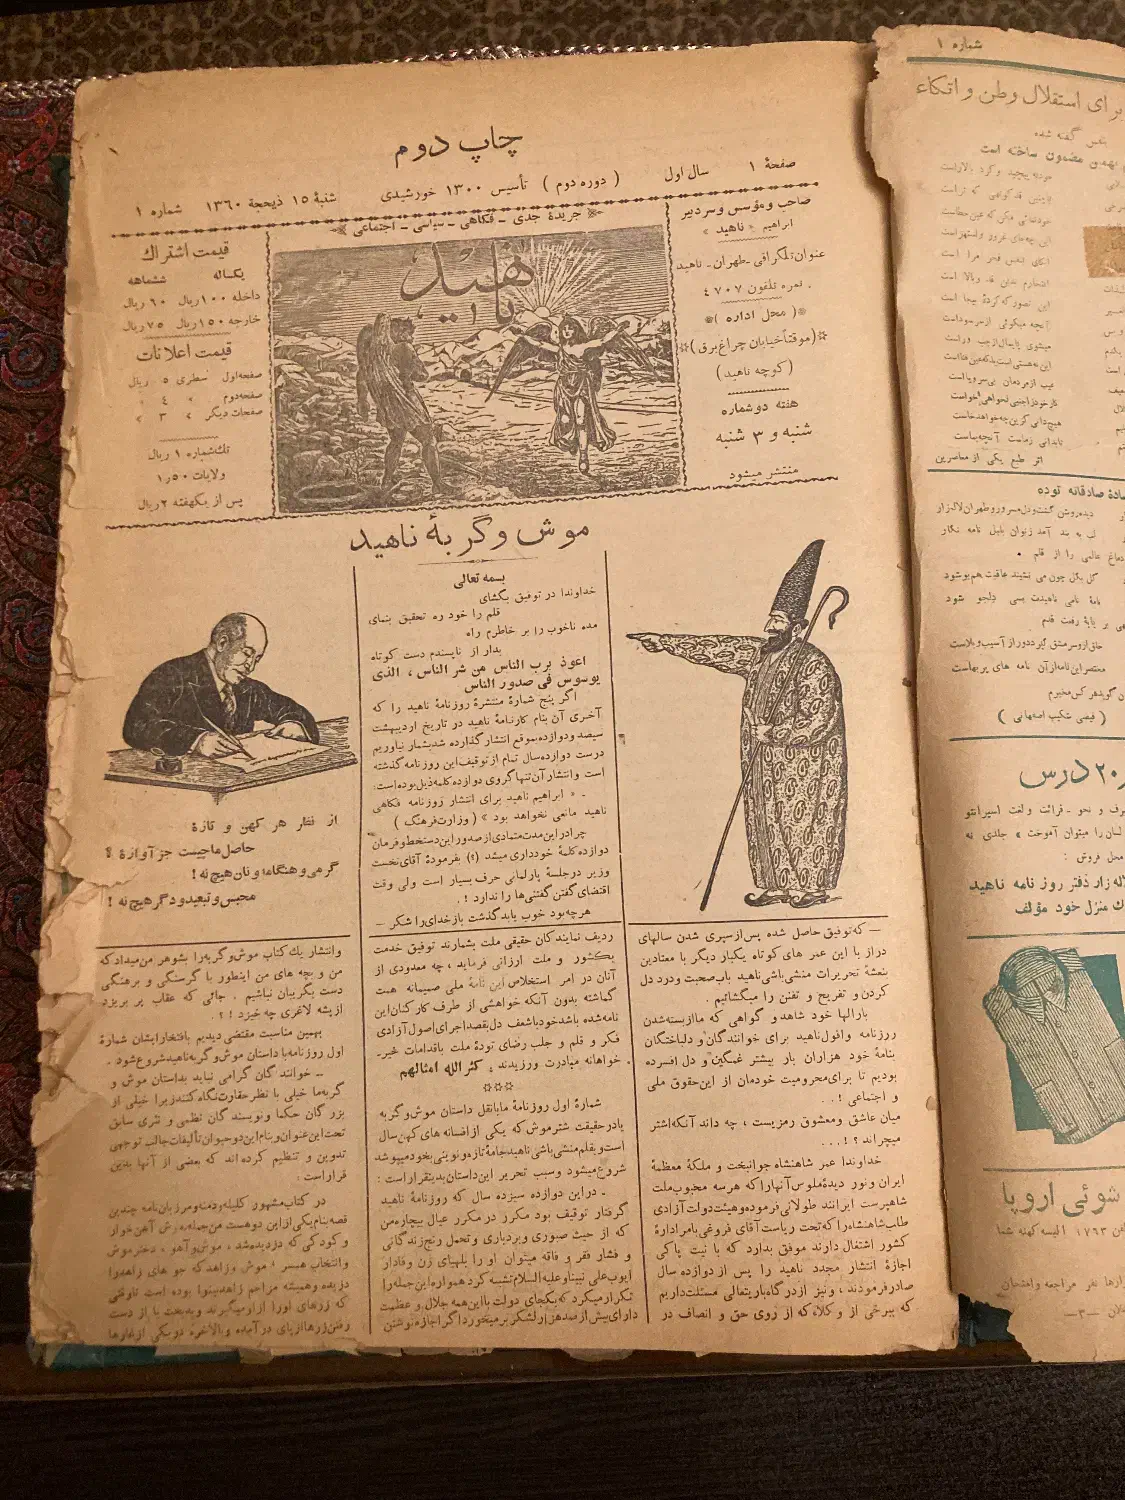 چاپ دوم
۱
صفحهٔ ۱ سال اول ( دوره دوم ) تأسیس ۱۳۰۰ خورشیدی شنبهٔ ۱۵ ذیحجهٔ ۱۳۶۰ شماره ۱
صاحب و مؤسس و سردبیر
ابراهیم « ناهید »
عنوان تلگرافی ـ طهران ـ ناهید
نمره تلفون ۴۷۰۷
( محل اداره )
(موقتاً خیابان چراغ برق)
(کوچه ناهید)
هفته دو شماره
شنبه و ۳ شنبه
منتشر میشود
جریدهٔ جدی ـ فکاهی ـ سیاسی ـ اجتماعی
ناهید
قیمت اشتراك
یکساله ششماهه
داخله ۱۰۰ ریال ۶۰ ریال
خارجه ۱۵۰ ریال ۷۵ ریال
قیمت اعلانات
صفحه اول سطری ۵ ریال
صفحه دوم » ۴ »
صفحات دیگر » ۳ »
تك شماره ۱ ریال
ولایات ۱٫۵۰
پس از یکهفته ۲ ریال
موش و گربهٔ ناهید
ـ که توفیق حاصل شده پس از سپری شدن سالهای
دراز با این عمر های کوتاه یکبار دیگر با معتادین
بنعشهٔ تحریرات منشی باشی ناهید باب صحبت و درد دل
کردن و تفریح و تفنن را میگشائیم .
بارالها خود شاهد و گواهی که ما از بسته شدن
روزنامه و افول ناهید برای خوانندگان و دلباختگان
بنامهٔ خود هزاران بار بیشتر غمگین و دل افسرده
بودیم تا برای محرومیت خودمان از این حقوق ملی
و اجتماعی !..
میان عاشق و معشوق رمزیست ، چه داند آنکه اشتر
میچراند ؟ !...
خداوندا عمر شاهنشاه جوانبخت و ملکهٔ معظمهٔ
ایران و نور دیدهٔ ملوس آنها را که هر سه محبوب ملت
شاهپرست ایرانند طولانی فرموده و هیئت دولت آزادی
طلب شاهنشاه را که تحت ریاست آقای فروغی بامر ادارهٔ
کشور اشتغال دارند موفق بدارد که با نیت پاکی
اجازهٔ انتشار مجدد ناهید را پس از دوازده سال
صادر فرمودند ، و نیز از درگاه باریتعالی مسئلت داریم
که برخی از وکلاء که از روی حق و انصاف در
بسمه تعالی
خداوندا در توفیق بگشای
قلم را خود ره تحقیق بنمای
مده ناخوب را بر خاطرم راه
بدار از ناپسندم دست کوتاه
اعوذ برب الناس من شر الناس ، الذی
یوسوس فی صدور الناس
اگر پنج شمارهٔ منتشرهٔ روزنامهٔ ناهید را که
آخری آن بنام کارنامهٔ ناهید در تاریخ اردیبهشت
سیصد و دوازده بموقع انتشار گذارده شد بشمار نیاوریم
درست دوازده سال تمام از توقیف این روزنامه گذشته
است و انتشار آن تنها گروی دوازده کلمه ذیل بوده است:
ـ « ابراهیم ناهید برای انتشار روزنامه فکاهی
ناهید مانعی نخواهد بود » ( وزارت فرهنگ )
چرا در این مدت متمادی از صدور این دستخط و فرمان
دوازده کلمهٔ خودداری میشد (؟) بفرمودهٔ آقای نخست
وزیر در جلسهٔ پارلمانی حرف بسیار است ولی وقت
اقتضای گفتن گفتنی‌ها را ندارد !.
هرچه بود خوب یا بد گذشت باز خدای را شکر ـ
ردیف نمایندگان حقیقی ملت بشمارند توفیق خدمت
بکشور و ملت ارزانی فرماید ، چه معدودی از
آنان در امر استخلاص این نامهٔ ملی صمیمانه همت
گماشته بدون آنکه خواهشی از طرف کارکنان این
نامه شده باشد خود با شعف دل بقصد اجرای اصول آزادی
فکر و قلم و جلب رضای تودهٔ ملت باقدامات خیر ـ
خواهانه مبادرت ورزیدند ، کثر الله امثالهم .
شمارهٔ اول روزنامهٔ ما با نقل داستان موش و گربه
یا در حقیقت شتر موش که یکی از افسانه های کهن سال
است و بقلم منشی باشی ناهید جامهٔ تازه و نوینی بخود میپوشد
شروع میشود و سبب تحریر این داستان بدینقرار است :
ـ در این دوازده سیزده سال که روزنامهٔ ناهید
گرفتار توقیف بود مکرر در مکرر عیال بیچارهٔ من
که از حیث صبوری و بردباری و تحمل رنج زندگانی
و فشار فقر و فاقه میتوان او را بلهپای زن وفادار
ایوب علی نبینا و علیه السلام تشبیه کرد همواره این جمله را
تکرار میکرد که بکجای دولت با این همه جلال و عظمت
دارای بیش از صد هزار لشکر بر میخورد اگر اجازه نوشتن
از نظار هر کهن و تازهٔ
حاصل ما چیست جز آوازهٔ ؟
گرمی و هنگامه و نان هیچ نه !
محبس و تبعید و دگر هیچ نه !
و انتشار یك کتاب موش و گربه را بشوهر من میداد که
من و بچه های من اینطور با گرسنگی و برهنگی
دست بگریبان نباشیم . جائی که عقاب پر بریزد
از پشه لاغری چه خیزد ! ؟ .
بهمین مناسبت مقتضی دیدیم بافتخار ایشان شمارهٔ
اول روزنامه با داستان موش و گربه ناهید شروع شود .
ـ خوانندگان گرامی نباید بداستان موش و
گربه ما خیلی با نظر حقارت نگاه کنند زیرا خیلی از
بزرگان حکما و نویسندگان نظمی و نثری سابق
تحت این عنوان و بنام این دو حیوان تألیفات جالب توجهی
تدوین و تنظیم کرده اند که بعضی از آنها بدین
قرار است :
در کتاب مشهور کلیله و دمنه و مرزبان نامه چندین
قصه بنام یکی از این دو هست من جمله موش آهن خوار
و کودکی که دزدیده شد ، موش و آهو ، دختر موش
و انتخاب همسر ، موش و زاهد که
شماره ۱
برای استقلال وطن و اتکاء
بنفس گفته شده
بهمین مضمون ساخته است
اثر طبع یکی از معاصرین
صادقانه توده
( فیضی شکیب اصفهانی )
۲۰ درس
محل فروش :
لاله زار دفتر روزنامه ناهید
منزل خود مؤلف
شوئی اروپا
۱۷۹۳ البسه کهنه شما
ـ ۳ ـ